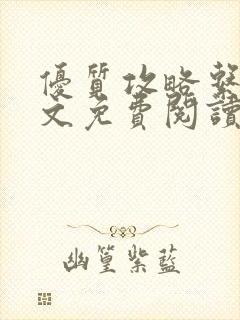 優質攻略繫
文免費閱讀
幽篁紫藍